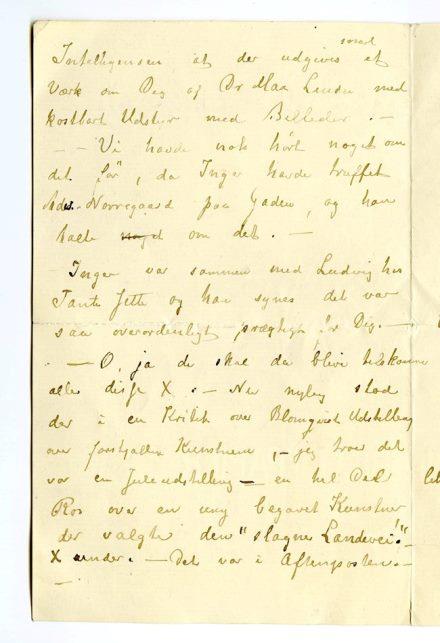 smed
Intelligensen at der udgives et
Værk om Dig af Dr Max Linde med
kostbart Udstyr med Billeder. —
— – Vi havde nok hørt noget om
det før, da Inger havde truffet
Nørregaard paa Gaden, og han
talte noget om det. —
Inger var sammen med Ludvig hos
Tante Jette og han synes det var
saa overordentligt prægtigt for Dig. —
— O, ja de skal da blive
alle disse X. — Nu nylig stod
der i en Kritik over Blomqvist Udstilling
over forskjellen Kunstnere, – jeg tror det
var en Juleudstilling — en hel Del
Ros over en ung begavet Kunstner
der valgte den "slagne Landevei!"
X under. — Det var i Aftenposten. —
—